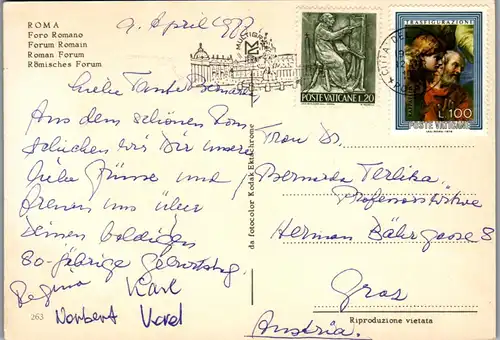 ROMA
Foro Romano
Forum Romain
Roman Forum
Römisches Forum
9. April 1977
POSTE VATICANE L.20
TRASFIGURAZIONE
L.100
POSTE VATICANE
CITTÀ DEL
Liebe Tante Bernarda
Aus dem schönen Rom
schicken wir Dir unsere
liebe Grüsse und
freuen uns über
Deinen baldigen
80-jährige Geburtstag.
Regina Karl
Norbert Karel
263
da fotocolor Kodak Ektachrome
Frau Dr.
Bernarda Terlika
Professorswitwe
Herman Bahrgasse 8
Graz
Austria.
Riproduzione vietata